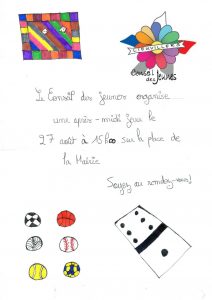 LIERVILLERS
Conseil
des jeunes
Le Conseil des jeunes organise
une après-midi jeux le
27 août à 15h00 sur la place de
la Mairie
Soyez au rendez-vous!